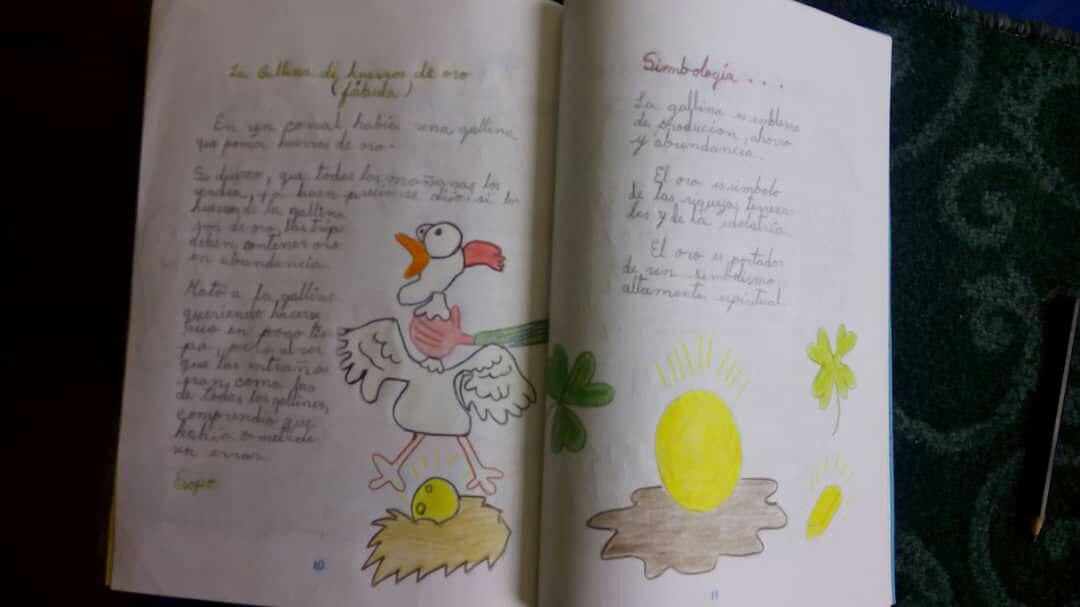 La Gallina de huevos de oro
(fábula)
En un corral había una gallina
que ponía huevos de oro.
Su dueño, que todas las mañanas los
vendía, y a buen precio se dijo: si los
huevos de la gallina
son de oro, las trip
deben contener oro
en abundancia.
Mató a la gallina
queriendo hacerse
rico en poco tiem
po, pero al ver
que las entrañas
eran como las
de todas las gallinas,
comprendio que
había cometido
un error.
Esopo
10
Simbología...
La gallina es emblema
de producion, ahorro
y abundancia.
El oro es simbolo
de las riquezas terrena
les y de la idolatría.
El oro es portador
de un simbolismo
altamente espiritual.
11